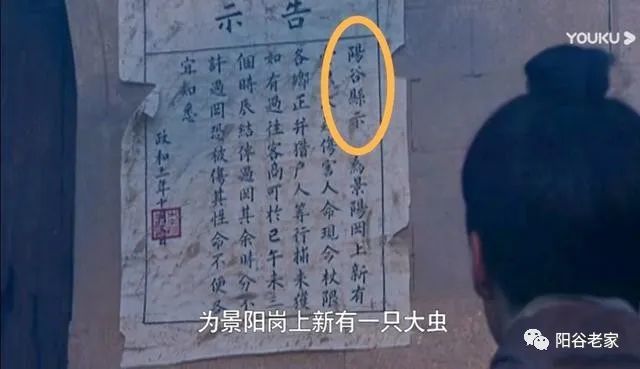 告示
陽谷縣示為景陽岡上新有
傷害人命現今杖限
各鄉正并猎户人等行捕未獲
如有過往客商可於巳午未三
個時辰結伴過岡其余時分不
許過岡恐被傷其性命不便各
宜知悉
政和三年十
YOUKU
为景阳岗上新有一只大虫
阳谷老家